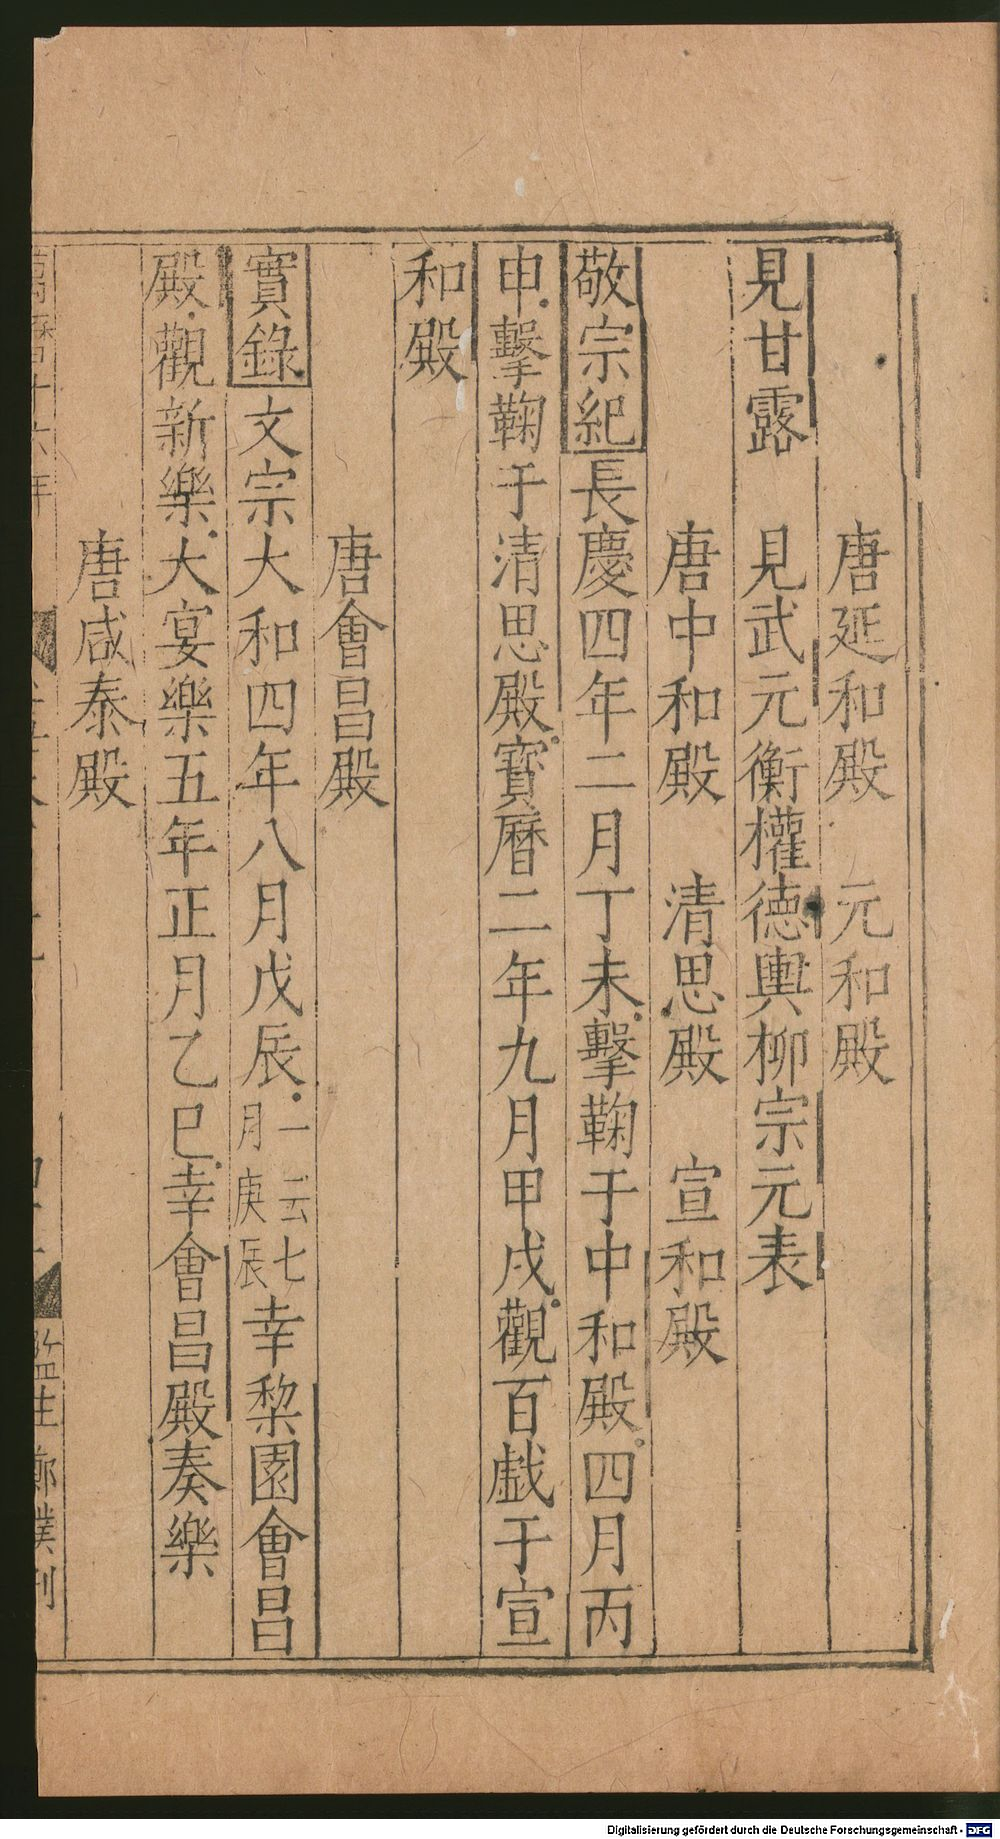 唐延和殿　元和殿
見甘露　見武元衡權德輿柳宗元表
唐中和殿　清思殿　宣和殿
敬宗紀長慶四年二月丁未擊鞠于中和殿四月丙
申擊鞠于清思殿寶曆二年九月甲戌觀百戲于宣
和殿
唐會昌殿
實錄文宗大和四年八月戊辰一云七月庚辰幸梨園會昌
殿觀新樂大宴樂五年正月乙巳幸會昌殿奏樂
唐咸泰殿
萬曆十六年
監生鄭濮刊
Digitalisierung gefördert durch die Deutsche Forschungsgemeinschaft - DFG